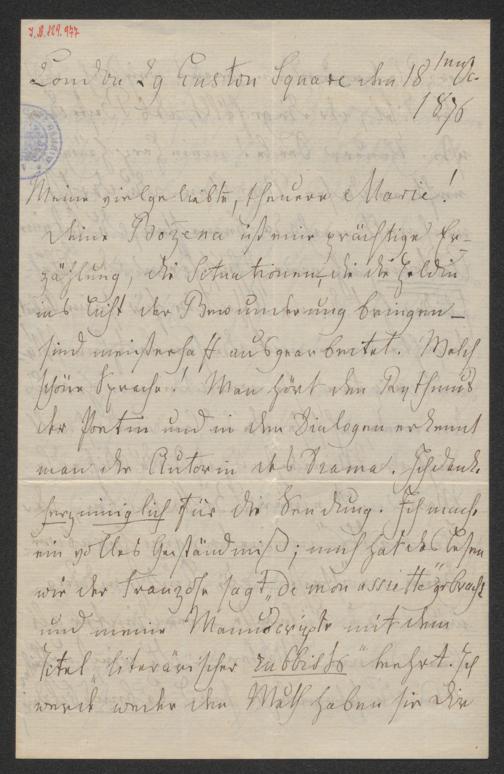 I.N. 129.977
London 29 Euston Square den 18
1876
Meine vielgeliebte, theuere Marie!
Deine Bozena ist eine prächtige Er-
zählung, die Situationen, die die Heldin
ins Licht der Bewunderung bringen –
sind meisterhaft ausgearbeitet. Welch
schöne Sprache! Man hört den Rythmus
der Poetin und in den Dialogen erkennt
man die Autorin des Drama. Ich danke
herzinniglich für die Sendung. Ich mache
ein volles Geständniß; mich hat das Lesen
wie der Franzose sagt „de mon assiette“ gebracht
und meine Manuscripte mit dem
Titel „literärischer zubbish“ beehrt. Ich
werde weder den Muth haben sie Dir